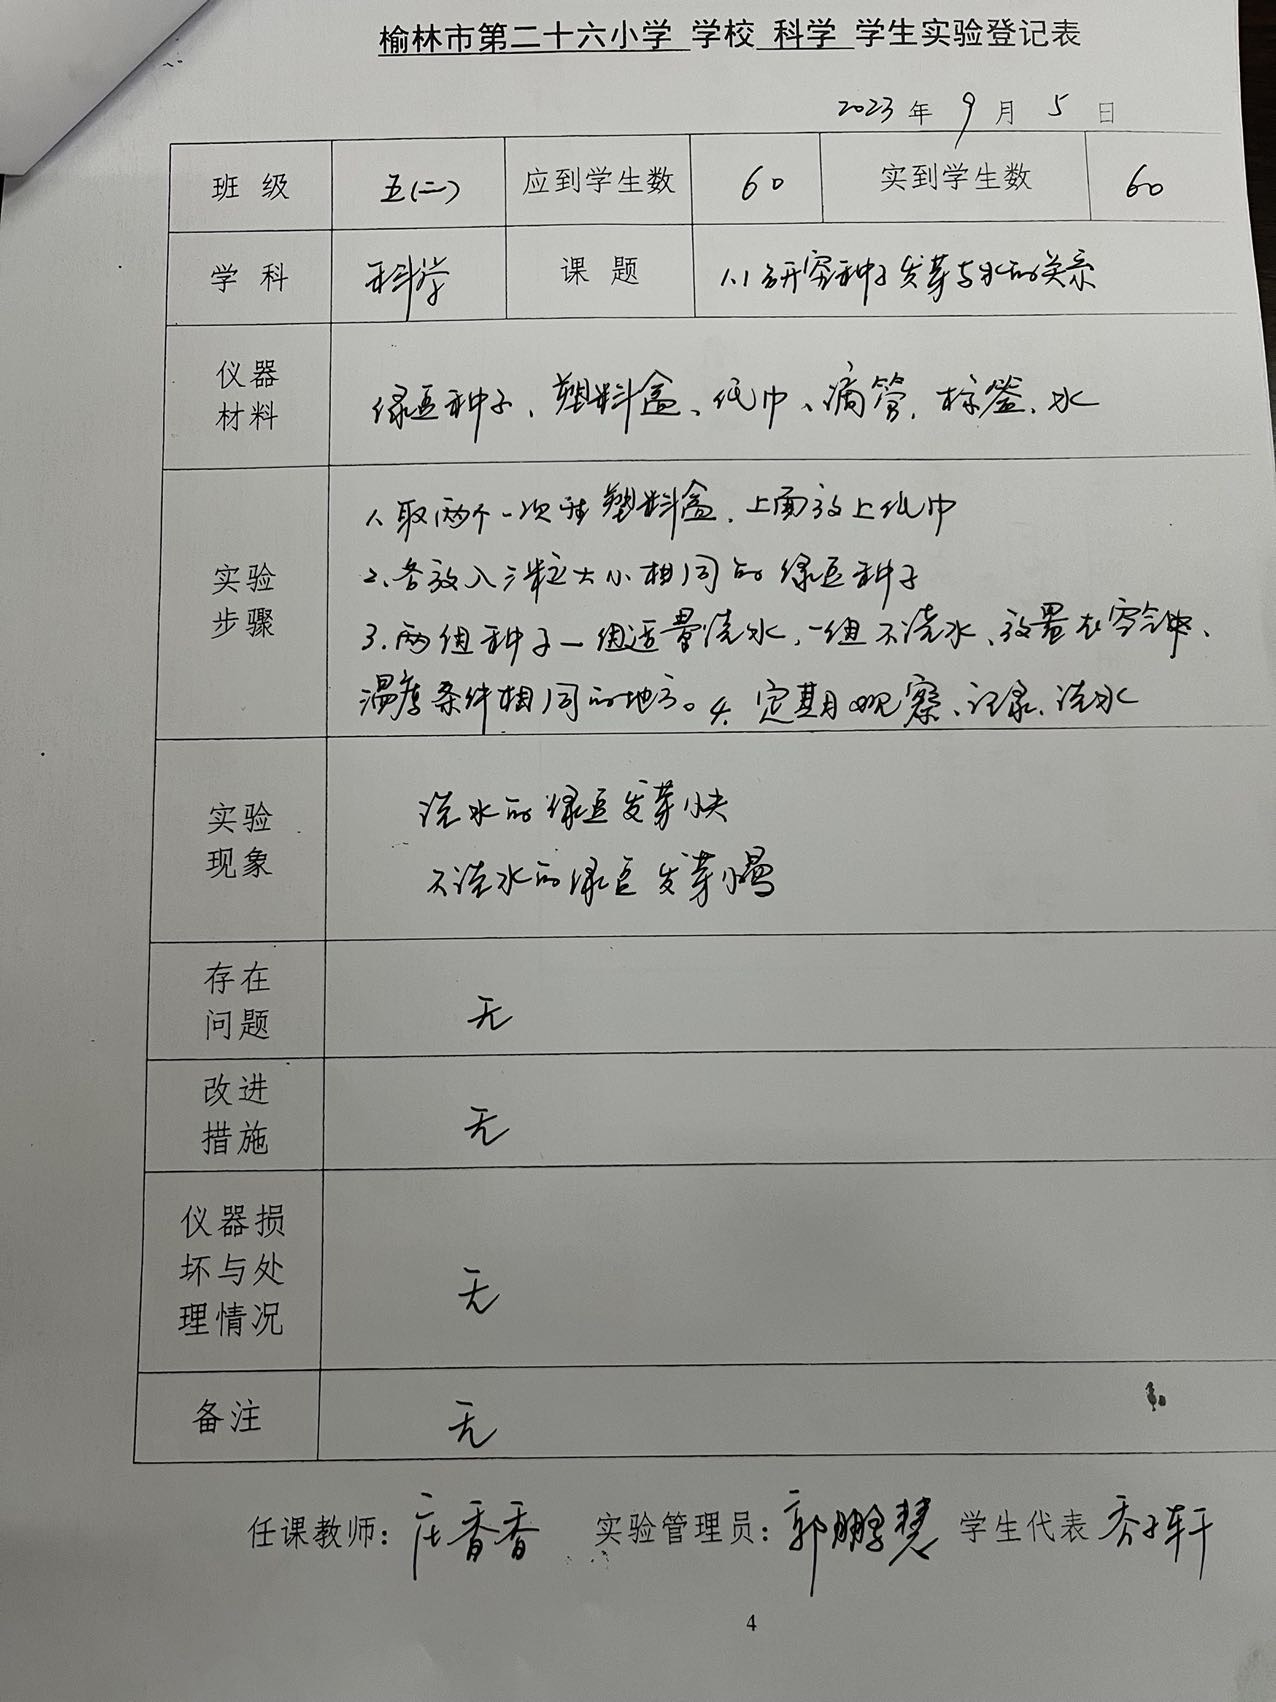 榆林市第二十六小学 学校 科学 学生实验登记表
2023 年 9 月 5 日
班 级 五(二) 应到学生数 60 实到学生数 60
学 科 科学 课 题 1.1研究种子发芽与水的关系
仪器
材料
绿豆种子、塑料盒、纸巾、滴管、标签、水
实验
步骤
1、取两个一次性塑料盒，上面放上纸巾
2、各放入三粒大小相同的绿豆种子
3.两组种子一组适量浇水，一组不浇水、放置在空气中、
温度条件相同的地方。4、定期观察、记录、浇水
实验
现象
浇水的绿豆发芽快
不浇水的绿豆发芽慢
存在
问题
无
改进
措施
无
仪器损
坏与处
理情况
无
备注
无
任课教师：庄香香 实验管理员：郭鹏慧 学生代表 乔子轩
4